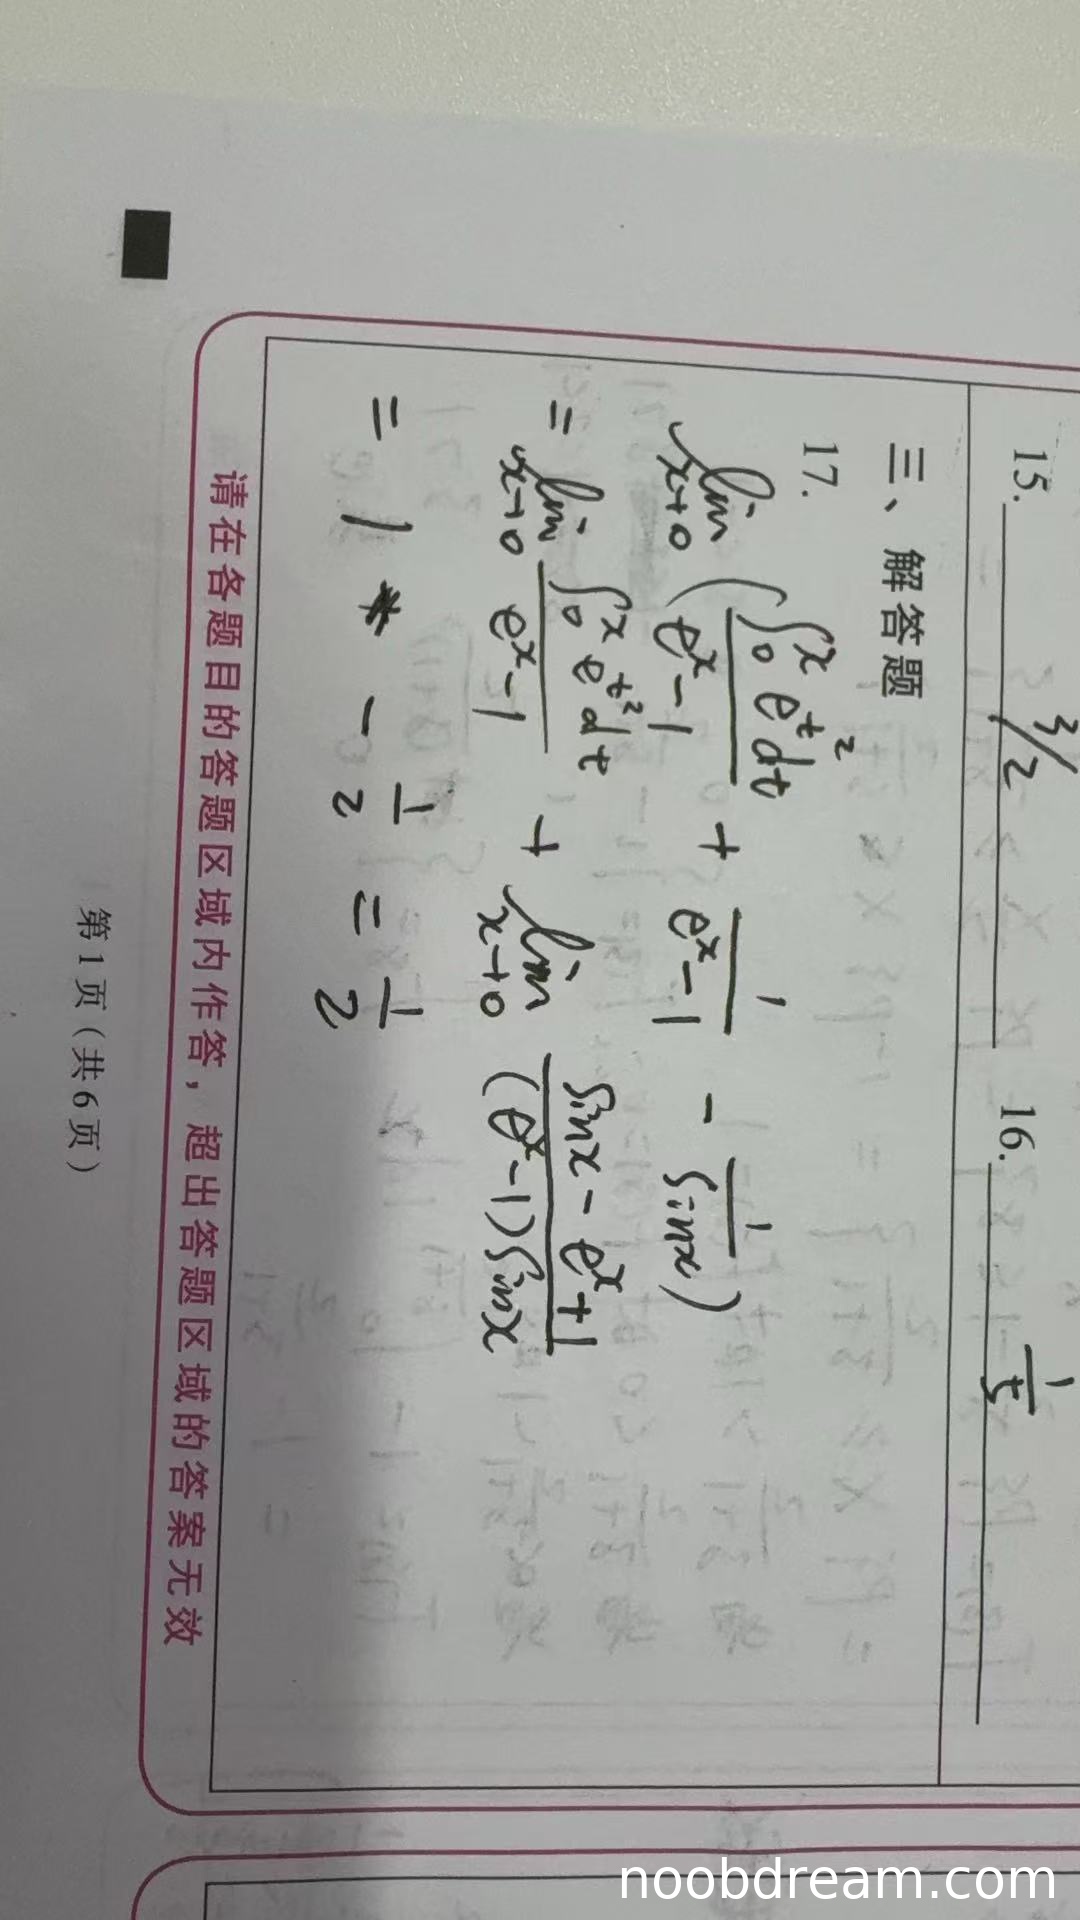 15. 3/2 16. 1/5
三、解答题
17.
lim x→0 (∫₀ˣ e^{t²}dt / (eˣ-1) + 1/(eˣ-1) - 1/sinx)
= lim x→0 ∫₀ˣ e^{t²}dt / (eˣ-1) + lim x→0 (sinx - eˣ+1) / ((eˣ-1)sinx)
= 1 - 1/2 = 1/2
请在各题目的答题区域内作答，超出答题区域的答案无效
第1页（共6页）
noobdream.com